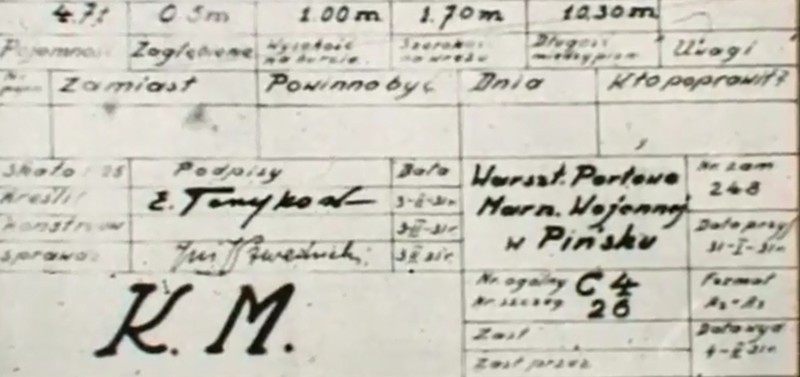 4.7t 0.5m 1.00m 1.70m 10.30m
Pojemność Zagłębienie Wysokość na burcie Szerokość na wrędze Długość między pion Uwagi
Zamiast Powinno być Dnia Kto poprawił?
Skala 1:25 Podpisy Data
Kreślił 3-II-31r.
Konstruow 3-II-31r.
Sprawdz 3-II-31r.
Warszt. Portowe
Marn. Wojennej
w Pińsku
Nr. zam
248
Data przy
31-I-31r.
K. M.
Nr. ogólny C 4
Nr. szczeg 26
Format
A2-A3
Zast
Zast przez
Data wyd
4-II-31r.